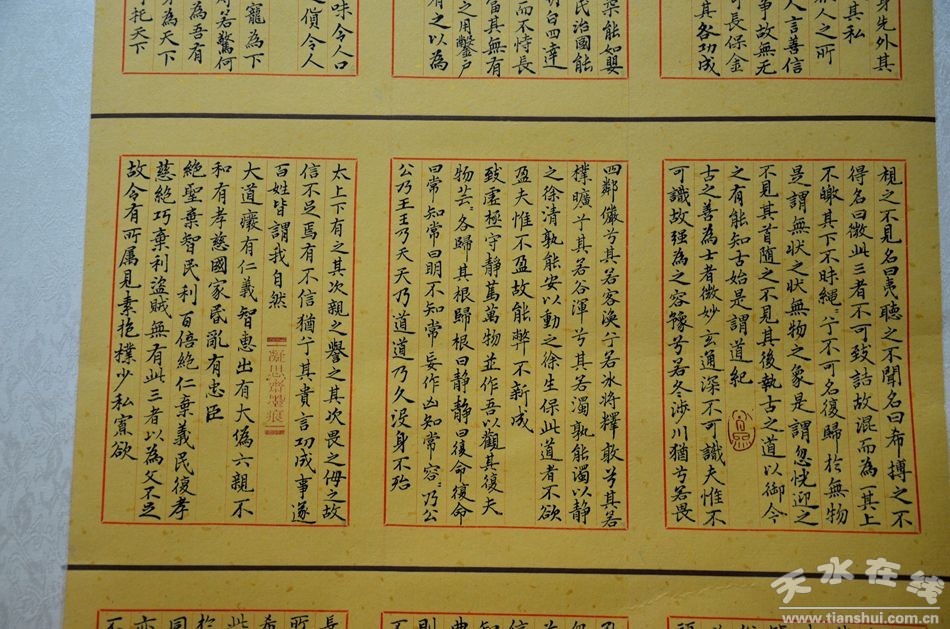 身先外其
其私
人之所
人言善信
事故無无
可長保金
其各功成
柔能如嬰
民治國能
明白四達
而不恃長
當其無有
之用鑿戶
有之以為
味令人口
之貨令人
寵為下
若驚何
為吾有
身為天下
可托天下
視之不見名曰夷聽之不聞名曰希搏之不
得名曰微此三者不可致詰故混而為一其上
不皦其下不昧繩〻兮不可名復歸於無物
是謂無狀之狀無物之象是謂忽恍迎之
不見其首隨之不見其後執古之道以御今
之有能知古始是謂道紀
古之善為士者微妙玄通深不可識夫惟不
可識故强為之容豫兮若冬涉川猶兮若畏
四鄰儼兮其若客渙兮若冰將釋敦兮其若
樸曠兮其若谷渾兮其若濁孰能濁以静
之徐清孰能安以動之徐生保此道者不欲
盈夫惟不盈故能弊不新成
致虛極守静篤萬物並作吾以觀其復夫
物芸〻各歸其根歸根曰静静曰復命復命
曰常知常曰明不知常妄作凶知常容〻乃公
公乃王王乃天天乃道道乃久没身不殆
太上下有之其次親之譽之其次畏之侮之故
信不足焉有不信猶兮其貴言功成事遂
百姓皆謂我自然
凝思齋墨痕
大道癈有仁義智惠出有大偽六親不
和有孝慈國家昏亂有忠臣
絕聖棄智民利百倍絕仁棄義民復孝
慈絕巧棄利盜賊無有此三者以為文不足
故令有所属見素抱樸少私寡欲
天水在线
www.tianshui.com.cn